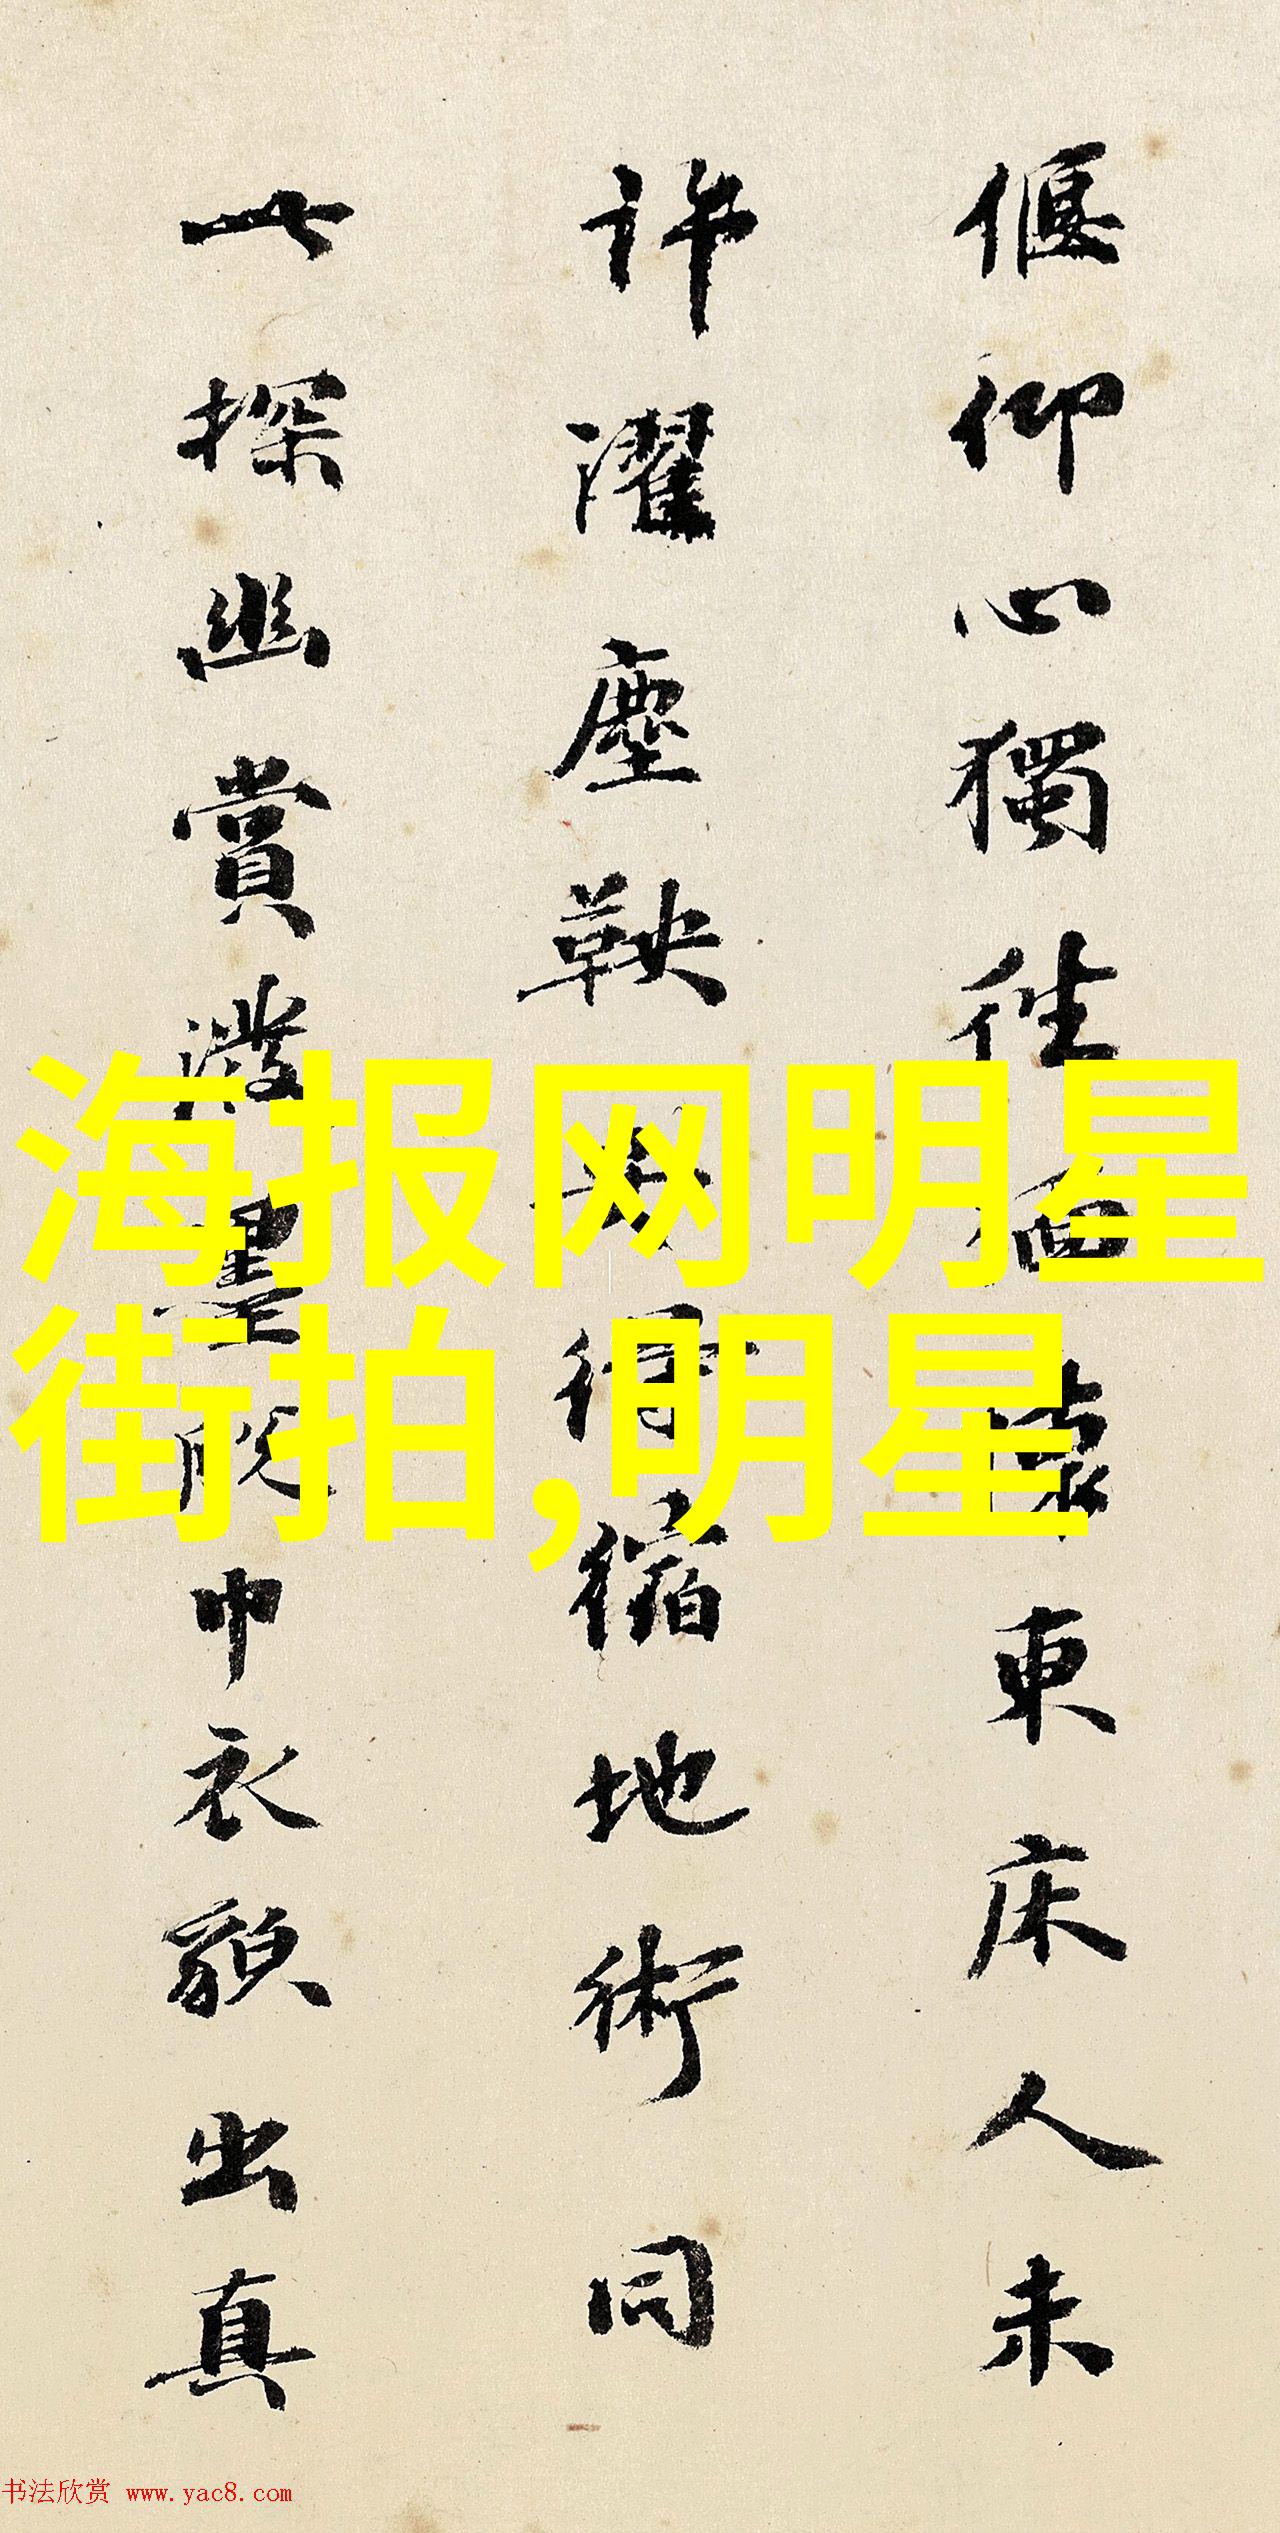 偃仰心獨徃懷東床人未
許濯塵鞅安得縮地術同
此探幽賞潑墨脫巾衣貌出真
海报网明星
街拍,明星
书法欣赏 www.yac8.com